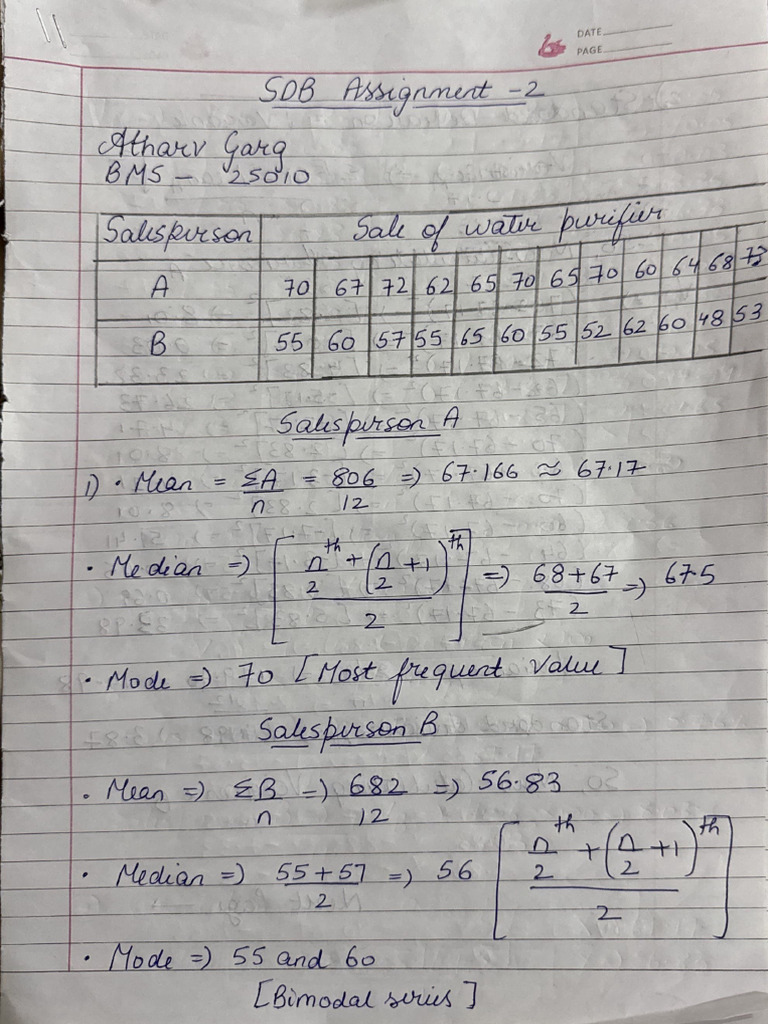 11
DATE
PAGE
SDB Assignment - 2
Atharv Garg
BMS - 25010
Salesperson Sale of water purifier
A 70 67 72 62 65 70 65 70 60 64 68 73
B 55 60 57 55 65 60 55 52 62 60 48 53
Salesperson A
1) • Mean = ΣA/n = 806/12 => 67.166 ≈ 67.17
• Median => [(n/2 th + (n/2 + 1)th)/2] => (68+67)/2 => 67.5
• Mode => 70 [Most frequent value]
Salesperson B
• Mean => ΣB/n => 682/12 => 56.83
• Median => (55+57)/2 => 56 [(n/2 th + (n/2 + 1)th)/2]
• Mode => 55 and 60
[Bimodal series]